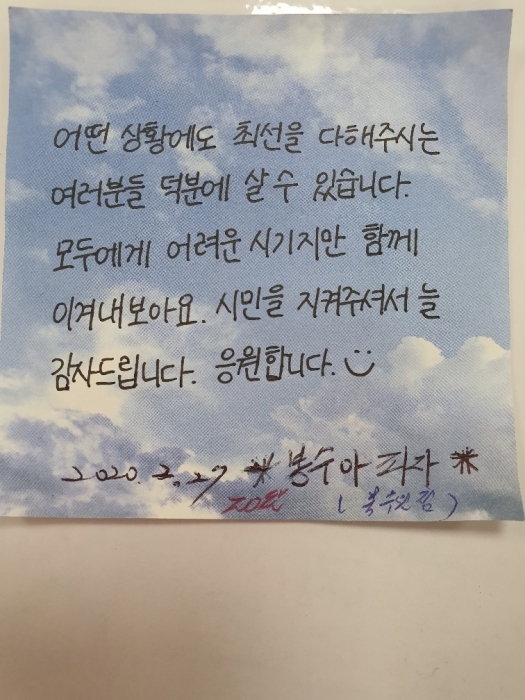 어떤 상황에도 최선을 다해주시는
여러분들 덕분에 살 수 있습니다.
모두에게 어려운 시기지만 함께
이겨내보아요. 시민을 지켜주셔서 늘
감사드립니다. 응원합니다.
2020. 2. 27 * 봉수아 피자 *
20판 (북수원점)